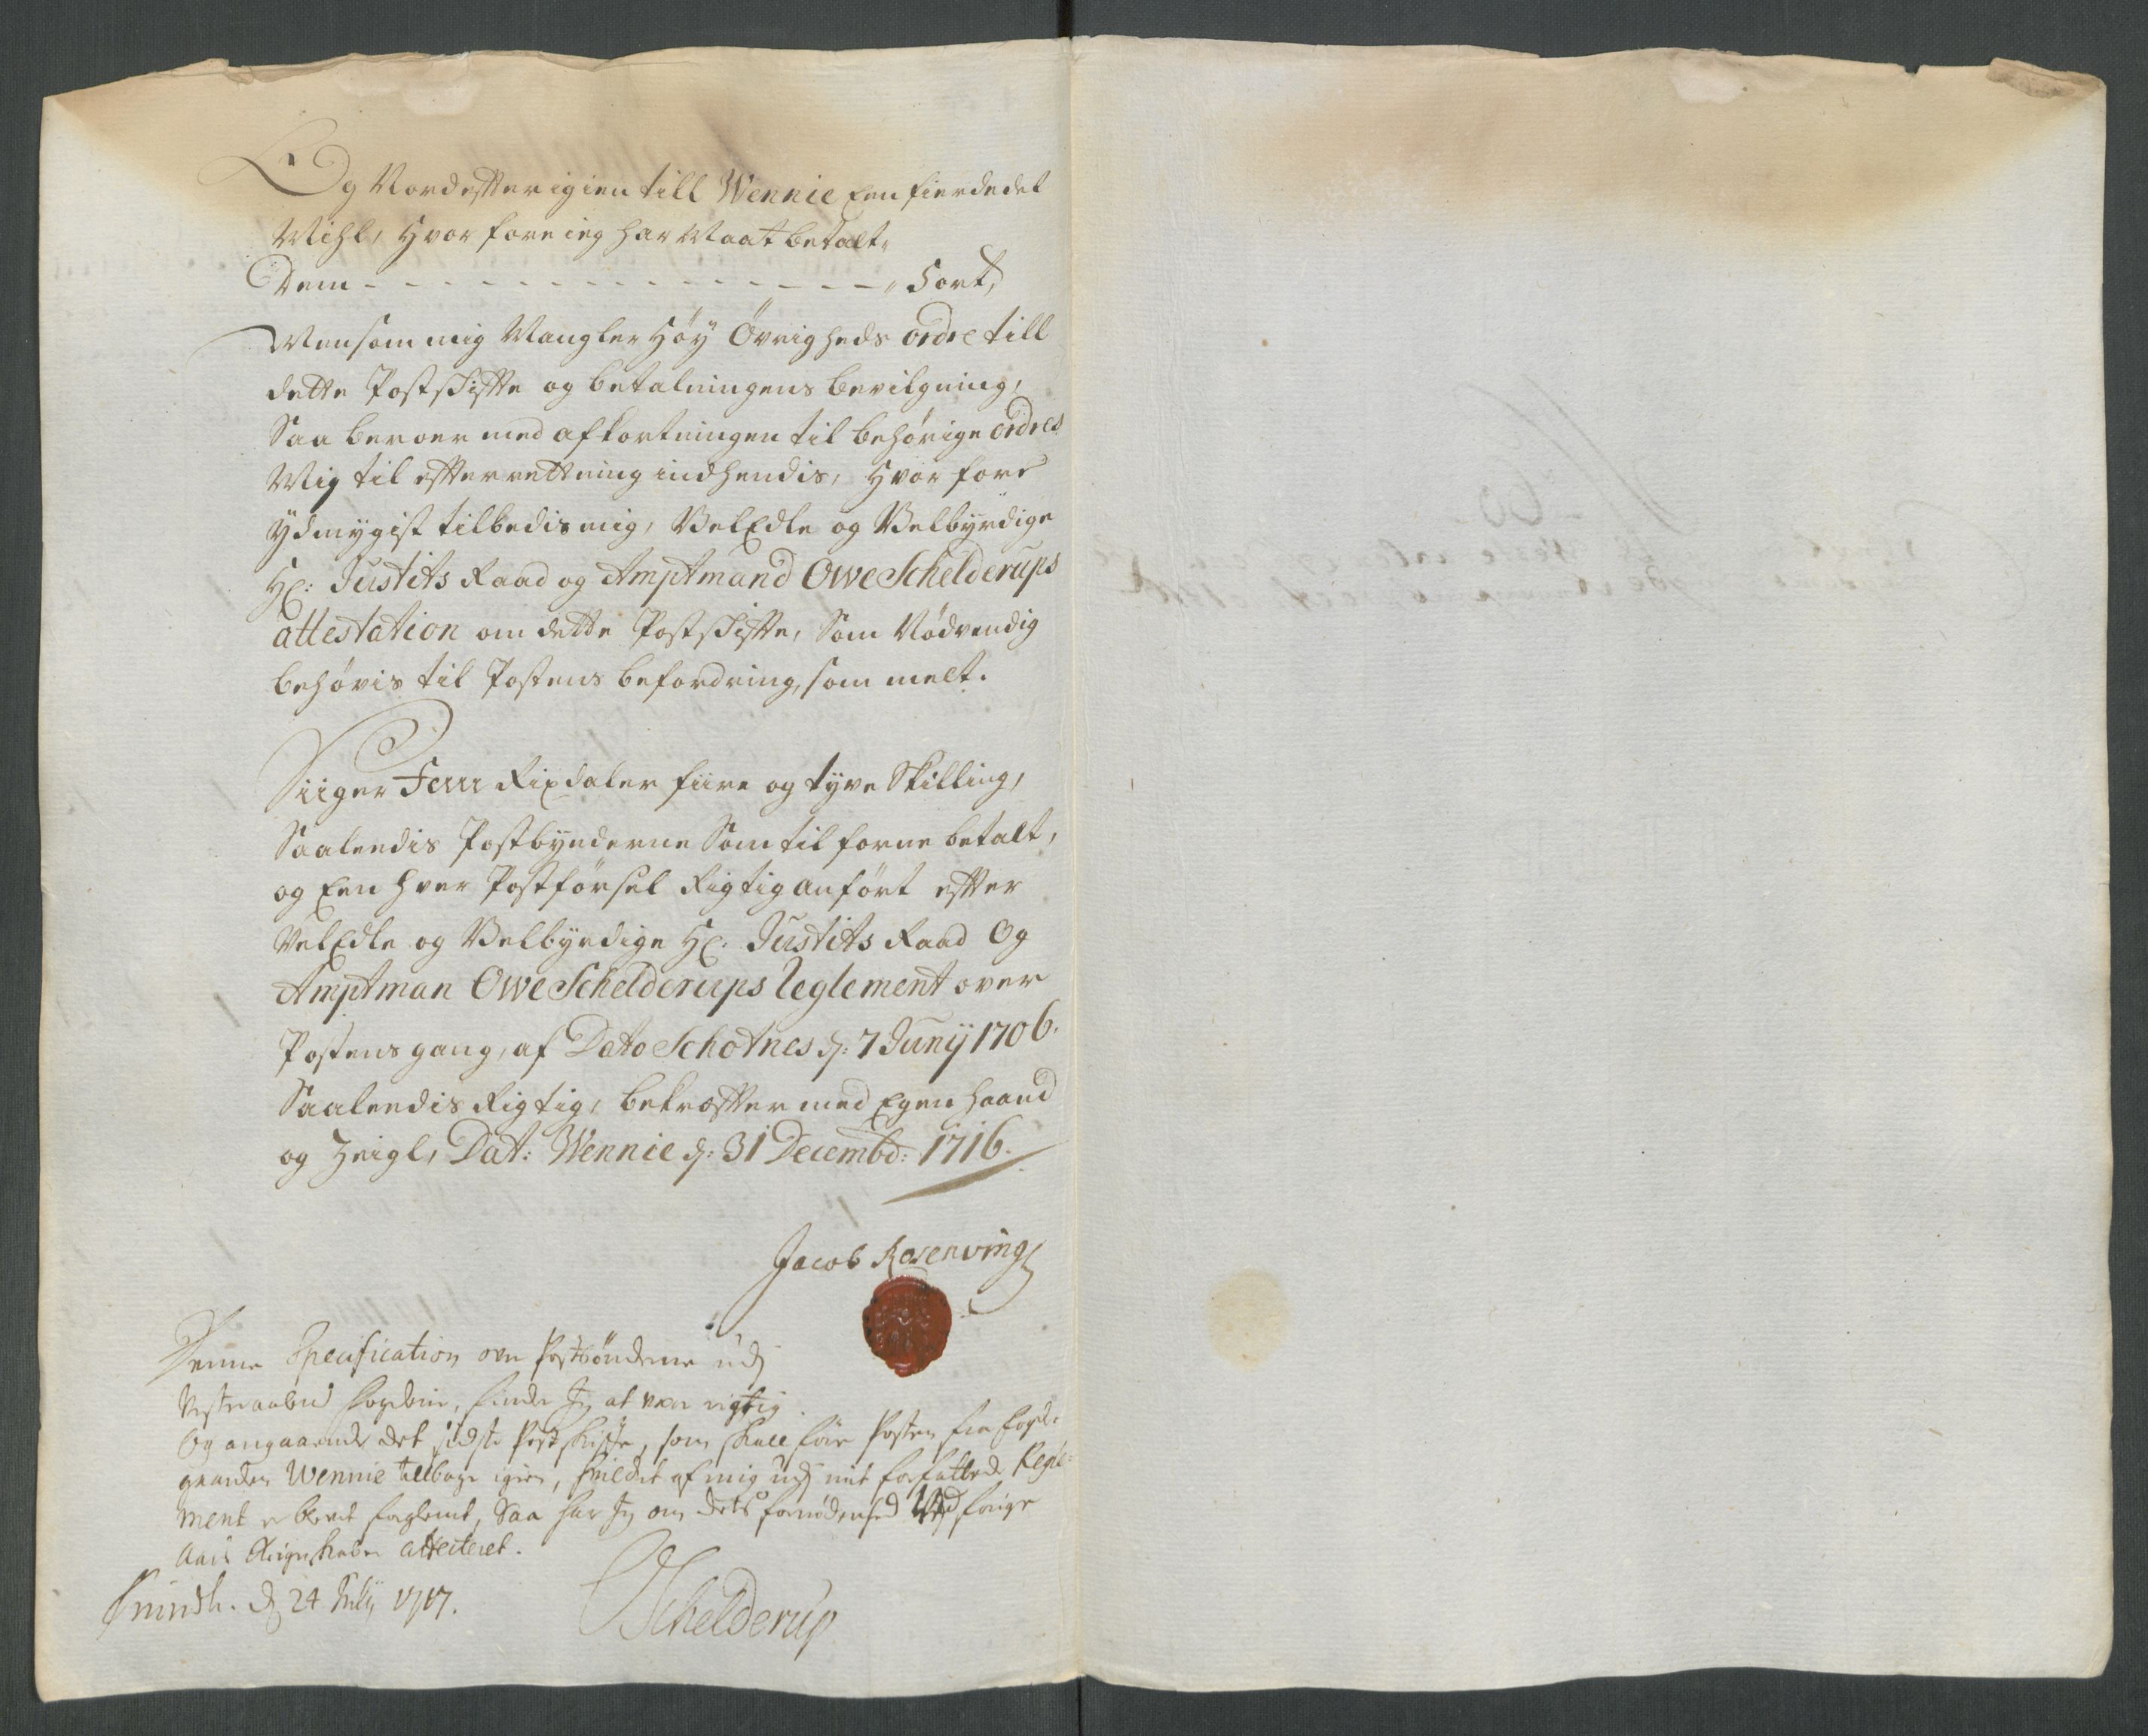 Og Nordefter igien till Wennie Een fierdedel
Miihl, Hvor fore ieg har Maat betalt
Dem - - - - - - - - - - - - - - - - 5 ort,
Men som mig Mangler Høy Øvrigheds ordre till
dette Postskiffte og betalningens bevilgning,
Saa beroer med afkortningen til behørige ordres
Mig til efterrettning indhendis, Hvor fore
ydmygist tilbedis mig, VelEdle og Velbyrdige
Hr: Justits Raad og Amptmand Owe Schelderups
attestation om dette Postskiffte, Som Nødvendig
behøvis til Postens befordring, som melt.
Siiger Fem Rixdaler fiire og tyve Skilling,
Saaledis Postbynderne Som til forne betalt,
og Een hver Postførsel Rigtig anført effter
VelEdle og Velbyrdige Hr. Justits Raad Og
Amptman Owe Schelderups Reglement over
Postens gang, af Dato Schotnes d: 7 Junij 1706.
Saaledis Rigtig, bekræffter med Egen Haand
og Zeigl, Dat: Wennie d: 31 Decembd: 1716.
Jacob Rosenving
Denne Specification over Postbønderne udj
finder Jeg at være rigtig
Og angaaende det sidste Postskiffte, som skall føre Posten fra
Wennie tilbage igien, hvilcket af mig udj mit forfattede Regle-
ment er blevet forglemt, Saa har Jeg om dets fornødenhed Ved forige
Aars Reigenskaber attesteret.
d 24 Julij 1717.
OSchelderup